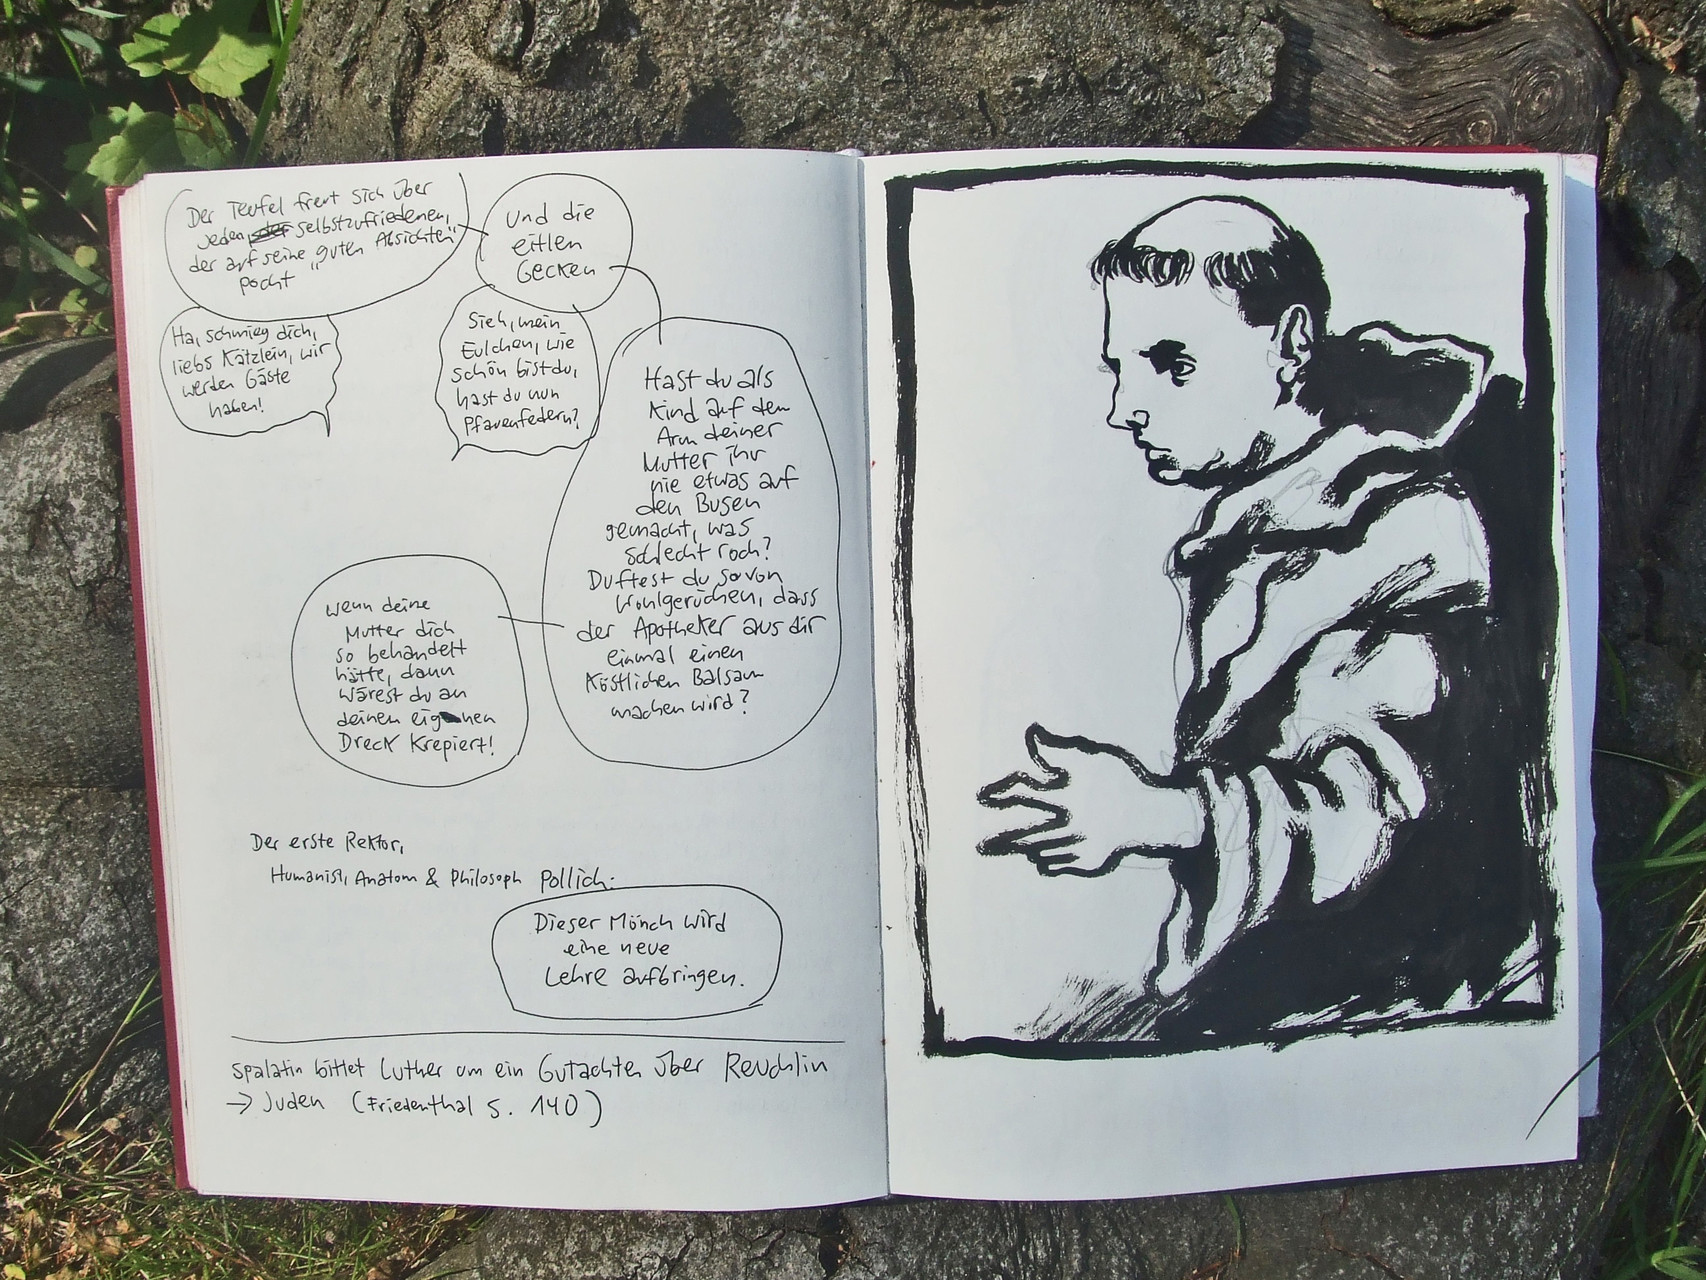 Der Teufel freut sich über
jeden, der selbstzufriedenen,
der auf seine „guten Absichten"
pocht
Und die
eitlen
Gecken
Ha, schmieg dich,
liebs Kätzlein, wir
werden Gäste
haben!
Sieh, mein
Eulchen, wie
schön bist du,
hast du nun
Pfauenfedern?
Hast du als
Kind auf dem
Arm deiner
Mutter ihr
nie etwas auf
den Busen
gemacht, was
schlecht roch?
Duftest du so von
Wohlgerüchen, dass
der Apotheker aus dir
einmal einen
Köstlichen Balsam
machen wird?
wenn deine
Mutter dich
so behandelt
hätte, dann
wärest du an
deinem eigenen
Dreck Krepiert!
Der erste Rektor,
Humanist, Anatom & Philosoph Pollich:
Dieser Mönch wird
eine neue
Lehre aufbringen.
Spalatin bittet Luther um ein Gutachten über Reuchlin
→ Juden (Friedenthal S. 140)